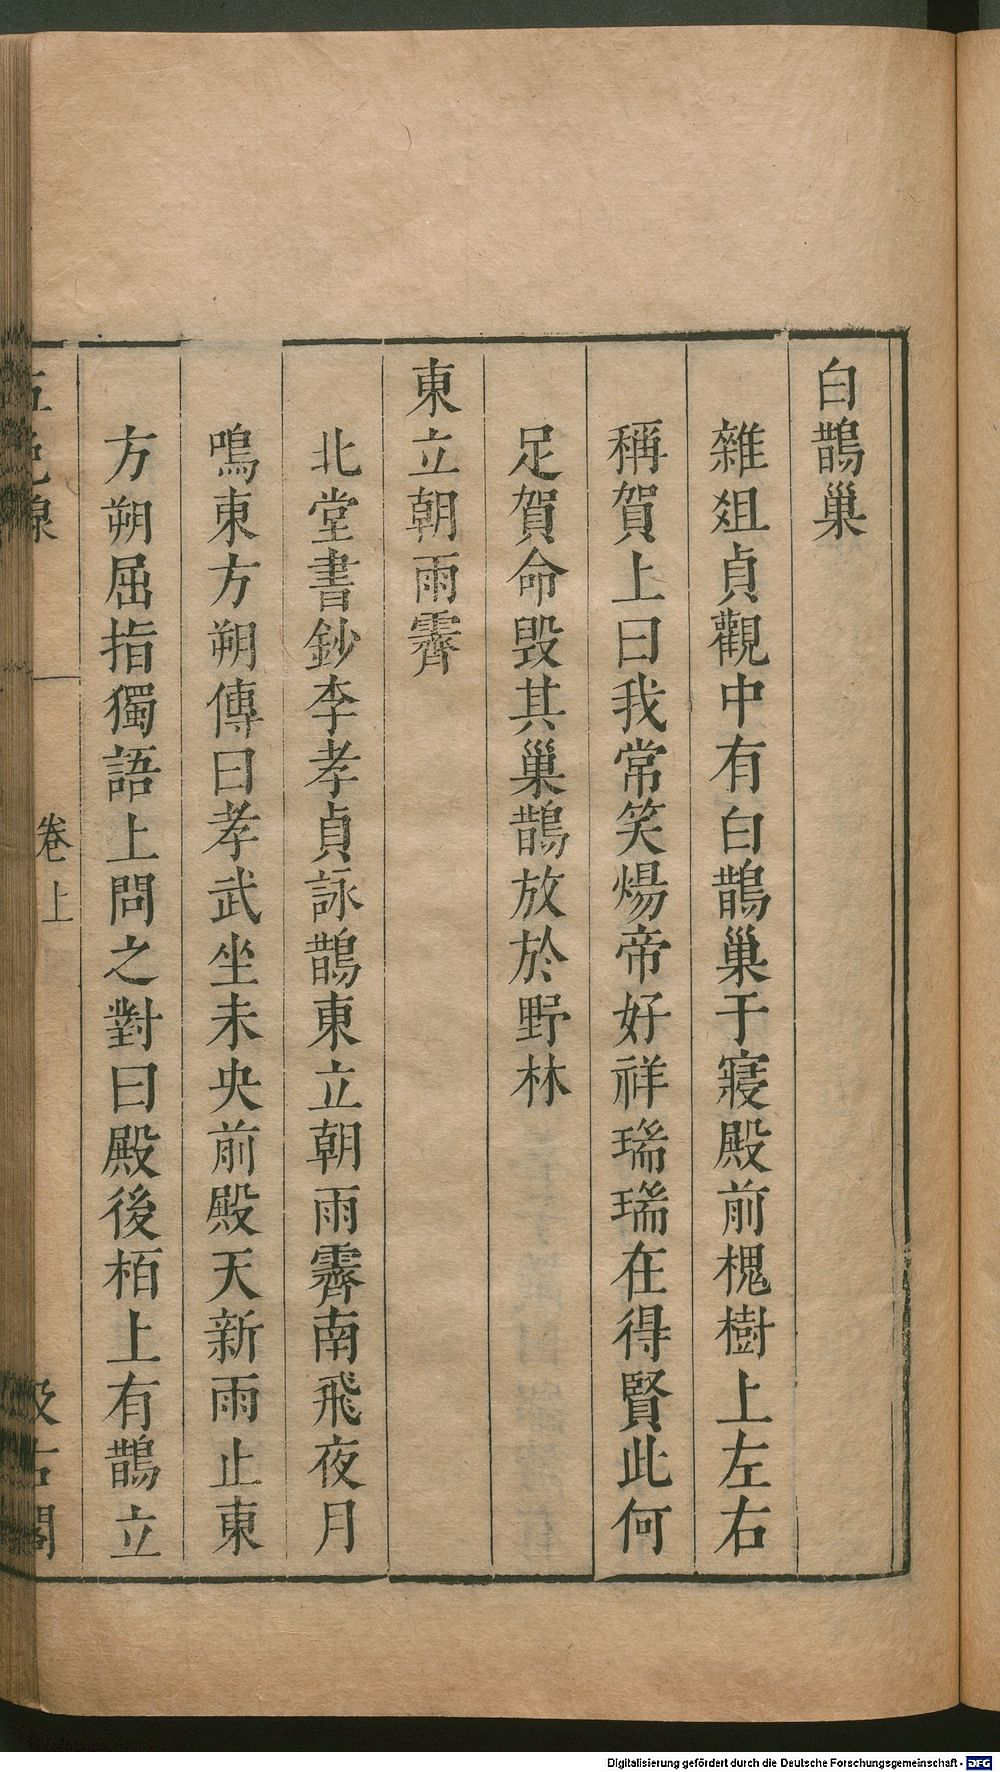 白鵲巢
雜俎貞觀中有白鵲巢于寢殿前槐樹上左右
稱賀上曰我常笑煬帝好祥瑞瑞在得賢此何
足賀命毀其巢鵲放於野林
東立朝雨霽
北堂書鈔李孝貞詠鵲東立朝雨霽南飛夜月
鳴東方朔傳曰孝武坐未央前殿天新雨止東
方朔屈指獨語上問之對曰殿後栢上有鵲立
五色線 卷上 汲古閣
Digitalisierung gefördert durch die Deutsche Forschungsgemeinschaft - DFG